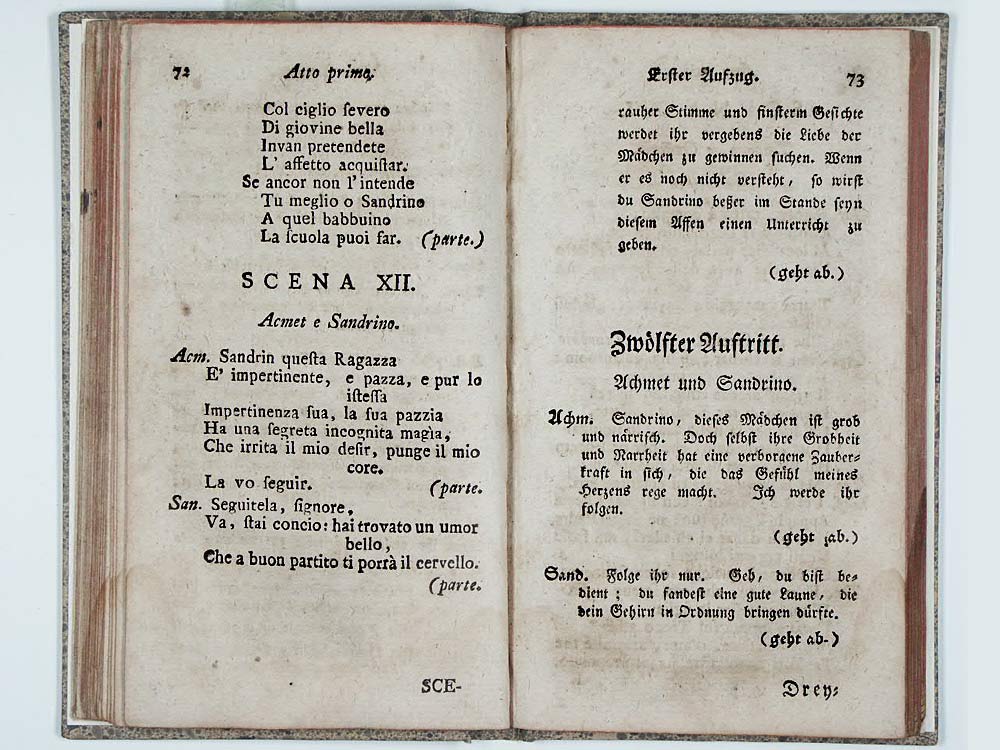 72 Atto primo.
Col ciglio ſevero
Di giovine bella
Invan pretendete
L' affetto acquiſtar.
Se ancor non l'intende
Tu meglio o Sandrino
A quel babbuino
La ſcuola puoi far. (parte.)
SCENA XII.
Acmet e Sandrino.
Acm. Sandrin queſta Ragazza
E' impertinente, e pazza, e pur lo
iſteſſa
Impertinenza ſua, la ſua pazzia
Ha una ſegreta incognita magìa,
Che irrita il mio deſir, punge il mio
core.
La vo ſeguir. (parte.
San. Seguitela, ſignore,
Va, ſtai concio: hai trovato un umor
bello,
Che a buon partito ti porrà il cervello.
(parte.
SCE-
Erſter Aufzug. 73
rauher Stimme und finſterm Geſichte
werdet ihr vergebens die Liebe der
Mädchen zu gewinnen ſuchen. Wenn
er es noch nicht verſteht, ſo wirſt
du Sandrino beßer im Stande ſeyn
dieſem Affen einen Unterricht zu
geben.
(geht ab.)
Zwölfter Auftritt.
Achmet und Sandrino.
Achm. Sandrino, dieſes Mädchen iſt grob
und närriſch. Doch ſelbſt ihre Grobheit
und Narrheit hat eine verborgene Zauber-
kraft in ſich, die das Gefühl meines
Herzens rege macht. Ich werde ihr
folgen.
(geht ab.)
Sand. Folge ihr nur. Geh, du biſt be-
dient; du fandeſt eine gute Laune, die
dein Gehirn in Ordnung bringen dürfte.
(geht ab-)
Drey-